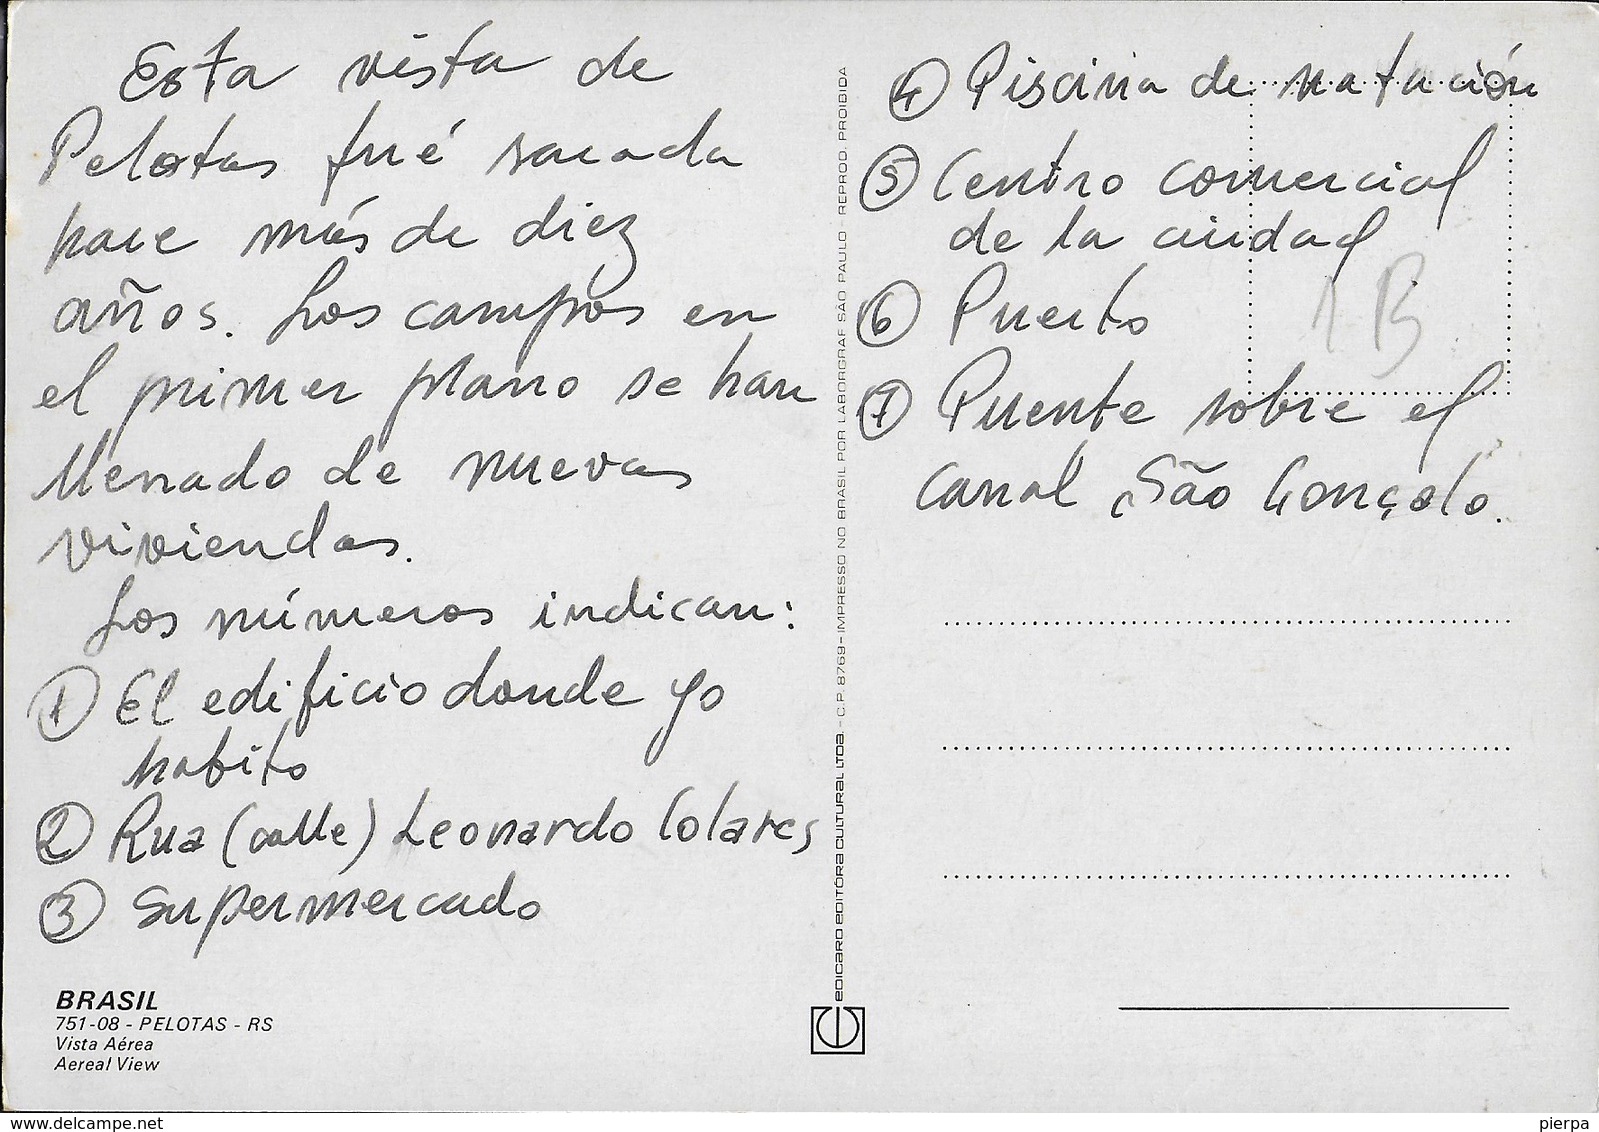 Esta vista de
Pelotas fué sacada
hace más de diez
años. Los campos en
el primer plano se han
llenado de nuevas
viviendas.
Los números indican:
① El edificio donde yo
habito
② Rua (calle) Leonardo Colares
③ Supermercado
BRASIL
751-08 - PELOTAS - RS
Vista Aérea
Aereal View
EDICARD EDITÔRA CULTURAL LTDA. - C.P. 8769 - IMPRESSO NO BRASIL POR LABORGRAF SÃO PAULO - REPROD. PROIBIDA
④ Piscina de natación
⑤ Centro comercial
de la ciudad
⑥ Puerto
1B
⑦ Puente sobre el
canal São Gonçolo.
www.delcampe.net
pierpa